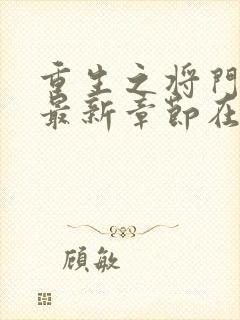 重生之将门
最新章节在
顾敏